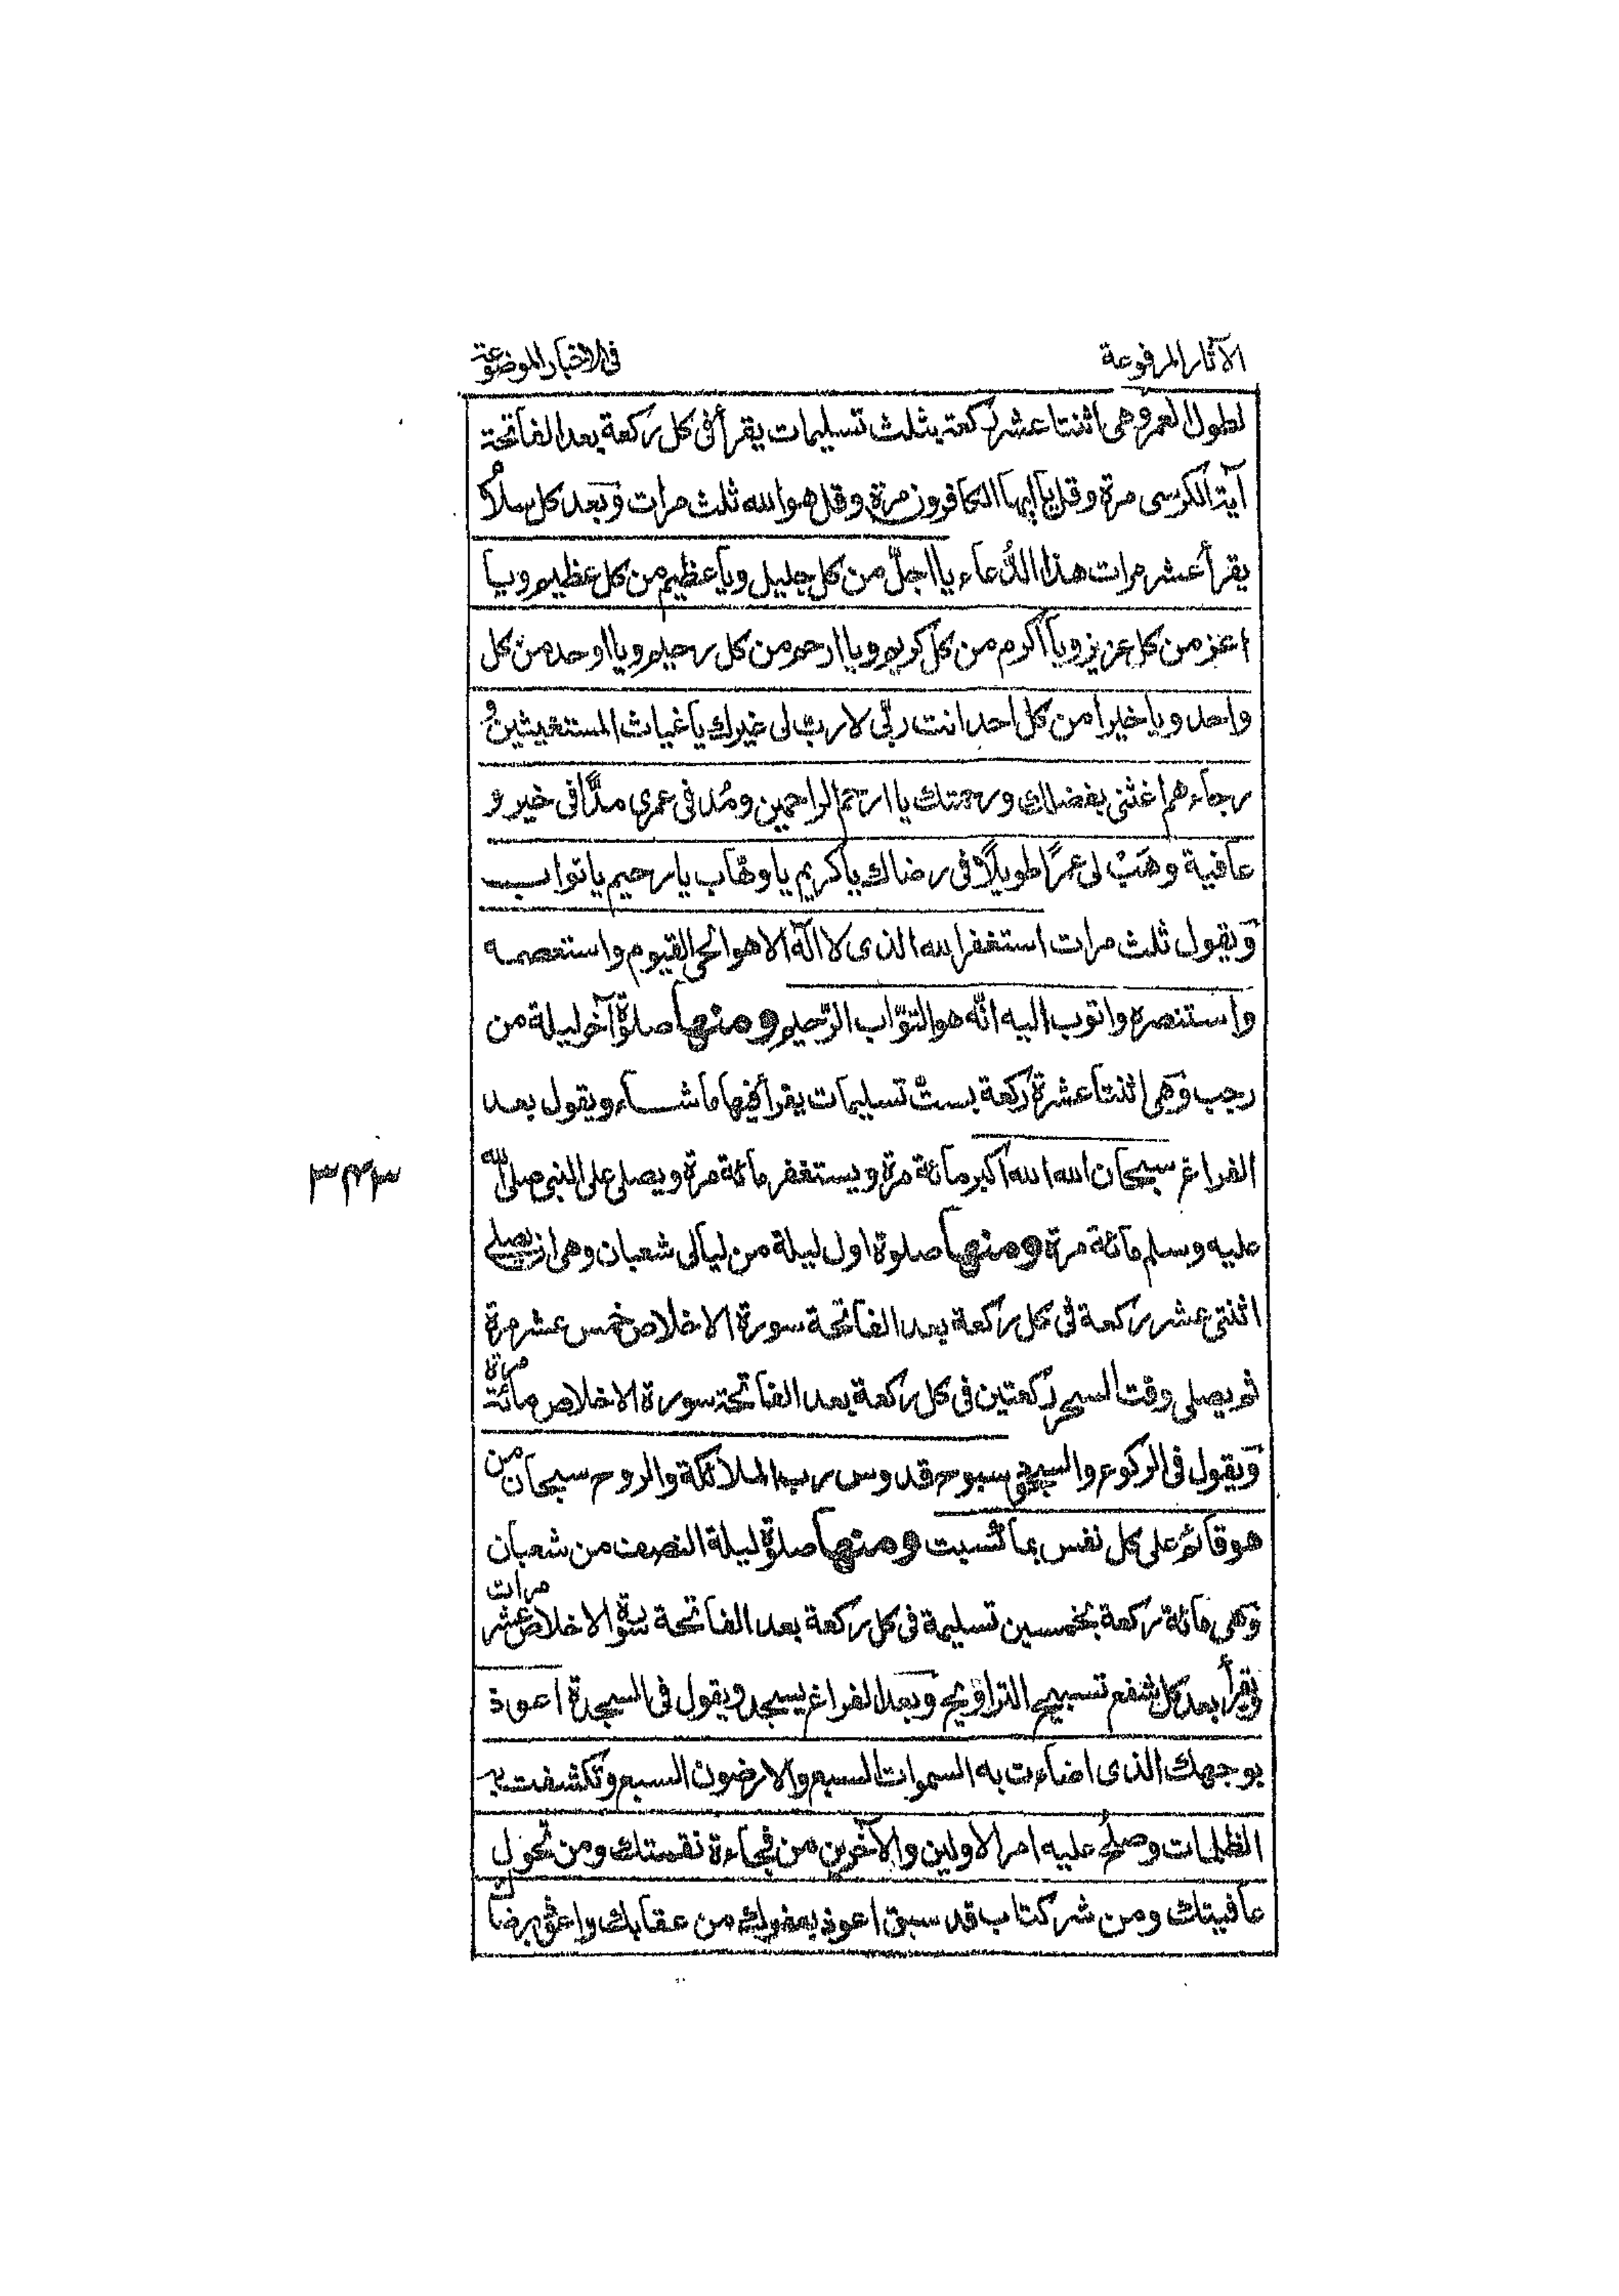 الآثار المرفوعة
فى الاخبار الموضوعة
لطول العمر وهى اثنتا عشر ركعة بثلث تسليمات يقرأ فى كل ركعة بعد الفاتحة
آية الكرسى مرة وقل يا ايها الكافرون مرة وقل هو الله ثلث مرات وبعد كل سلام
يقرأ عشر مرات هذا الدُّعاء يا اجلّ من كل جليل ويا عظيم من كل عظيم ويا
اعز من كل عزيز ويا اكرم من كل كريم ويا ارحم من كل رحيم ويا اوحد من كل
واحد ويا خيرا من كل احد انت ربّى لا ربّ لى غيرك يا غياث المستغيثين و
رجاءهم اغثنى بفضلك ورحمتك يا ارحم الراحمين ومُد فى عمرى مدًّا فى خير و
عافية وهَبْ لى عمرًا طويلًا فى رضاك يا كريم يا وهّاب يا رحيم يا تواب
ويقول ثلث مرات استغفر الله الذى لا اله الا هو الحى القيوم واستعصمه
واستنصره واتوب اليه انّه هو التوّاب الرّحيم ومنها صلوة آخر ليلة من
رجب وهى اثنتا عشرة ركعة بستّ تسليمات يقرأ فيها ما شاء ويقول بعد
الفراغ سبحان الله الله اكبر مائة مرة ويستغفر مائة مرة ويصلى على النبى صلى الله
٣٤٣
عليه وسلم مائة مرة ومنها صلوة اول ليلة من ليالى شعبان وهى ان يصلى
اثنتى عشر ركعة فى كل ركعة بعد الفاتحة سورة الاخلاص خمس عشر مرة
ثم يصلى وقت السحر ركعتين فى كل ركعة بعد الفاتحة سورة الاخلاص مائة مرة
ويقول فى الركوع والسجود سبوح قدوس رب الملائكة والروح سبحان من
هو قائم على كل نفس بما كسبت ومنها صلوة ليلة النصف من شعبان
وهى مائة ركعة بخمسين تسليمة فى كل ركعة بعد الفاتحة سورة الاخلاص عشر مرات
ويقرأ بعد كل شفع تسبيح التراويح وبعد الفراغ يسجد ويقول فى السجدة اعوذ
بوجهك الذى اضاءت به السموات السبع والارضون السبع وتكشفت به
الظلمات وصلح عليه امر الاولين والآخرين من فجاءة نقمتك ومن تحول
عافيتك ومن شر كتاب قد سبق اعوذ بعفوك من عقابك واعوذ برضاك